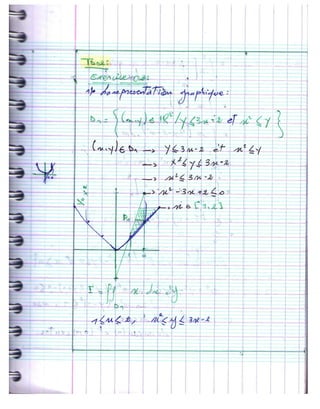 exercice
1/ La représentation graphique:
D₁ = {(x,y) ∈ ℝ² / y ≤ 3x-2 et x² ≤ y}
(x,y) ∈ D₁ → y ≤ 3x-2 et x² ≤ y
→ x² ≤ y ≤ 3x-2
→ x² ≤ 3x-2
→ x² - 3x + 2 ≤ 0
→ x ∈ [1,2]
D₁
I = ∬ x dx dy
D₁
1 ≤ x ≤ 2, x² ≤ y ≤ 3x-2